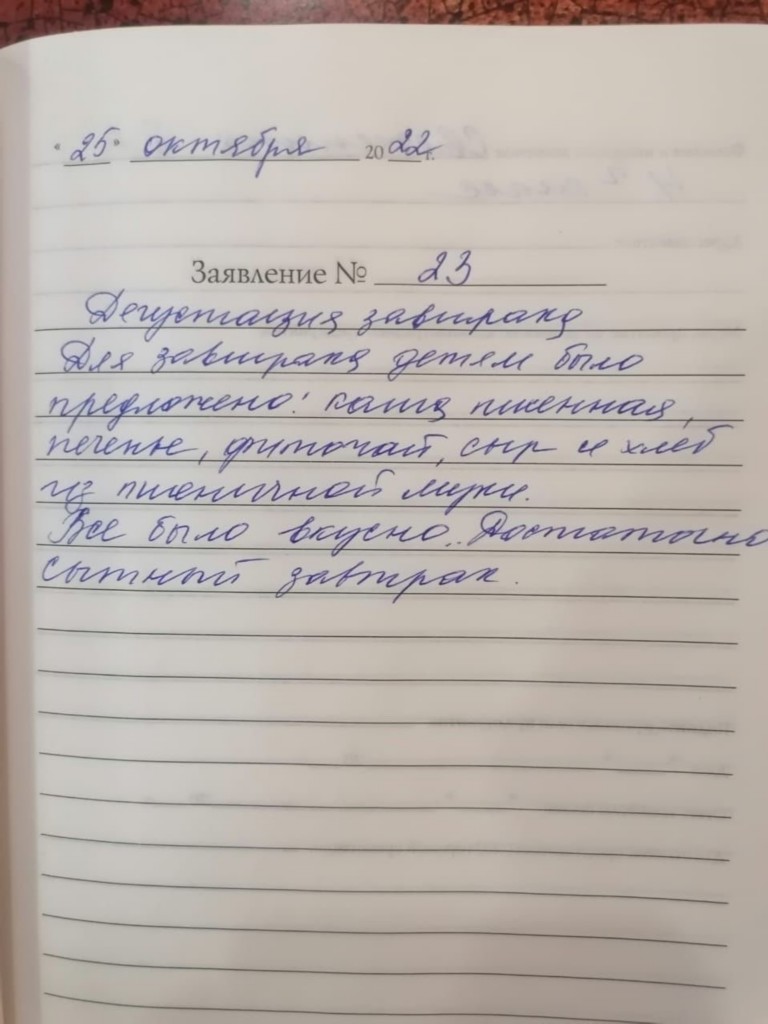 "25" октября 2022 г.
Заявление № 23
Дегустация завтрака
Для завтрака детям было
предложено: каша пшенная,
печенье, фиточай, сыр и хлеб
из пшеничной муки.
Все было вкусно. Достаточно
сытный завтрак.